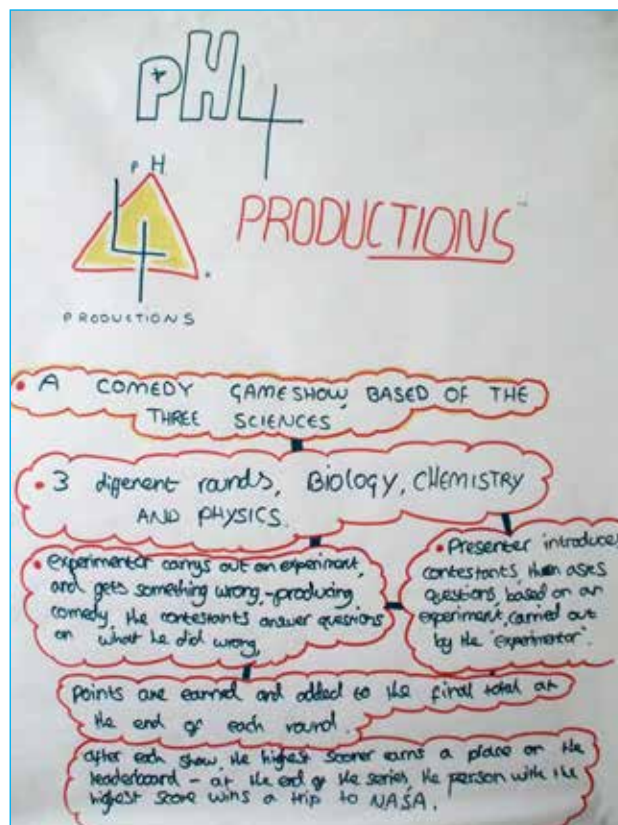 PH4
PH
4
PRODUCTIONS
PRODUCTIONS
• A COMEDY GAMESHOW, BASED OF THE
THREE SCIENCES
• 3 different rounds, BIOLOGY, CHEMISTRY
AND PHYSICS.
• experimentor carrys out an experiment,
and gets something wrong, -producing
comedy, the contestants answer questions
on what he did wrong,
• Presenter introduces
contestants, then asks
questions, based on an
experiment, carried out
by the "experimentor".
points are earned and added to the final total at
the end of each round.
after each show, the highest scorer earns a place on the
leaderboard - at the end of the series, the person with the
highest score wins a trip to NASA.